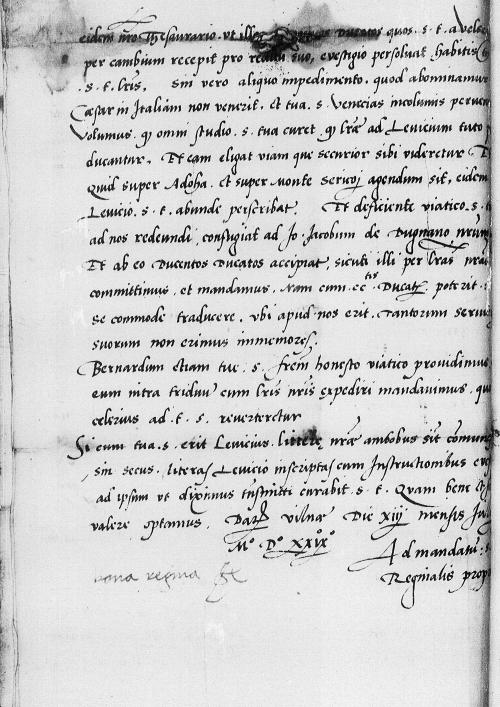 eidem nrõ Thesaurario. vt ille Ducatos quos. s. t. a
per cambium recepit pro suo, evestigio persoluat habitis
. s. t. lrĩs. Sin vero aliquo impedimento, quod abominamur
Cæsar in Italiam non venerit. et tua. s. Venecias incolumis
Volumus. q̃ omni studio. s. tua curet q̃ lræ ad Levicium tuto
ducantur. Et eam eligat viam que securior sibi videretur.
Quid super Adoha. et super Monte Sericoj agendum sit, eidem
Levicio. s. t. abunde perscribat. Et deficiente viatico. s.
ad nos redeundi, confugiat ad Jo. Jacobum de Dugnano nrũm
Et ab eo Ducentos Ducatos accipiat, sicuti illi per lrãs nrãs
committimus. et mandamus. Nam cum cc^tis Ducatis. poterit.
se commode traducere. vbi apud nos erit. Tantorum
suorum non erimus immemores.
Bernardum etiam tue. s. frem̃ honesto viatico providimus
eum intra triduũ cum lrĩs nrĩs expediri mandavimus,
celerius ad. t. s. reverteretur
Si cum tua. s. erit Levicius. litterę nræ ambobus sĩt
sin secus. literas Levicio inscriptas cum Instructionibus
ad ipsum vt diximus transmitti curabit. s. t. Quam bene
valere optamus. Datæ Vilnæ Die xiij mensis
M.º D.º XXIXº
Ad mandatũ. s.
Reginalis
bona regina sst